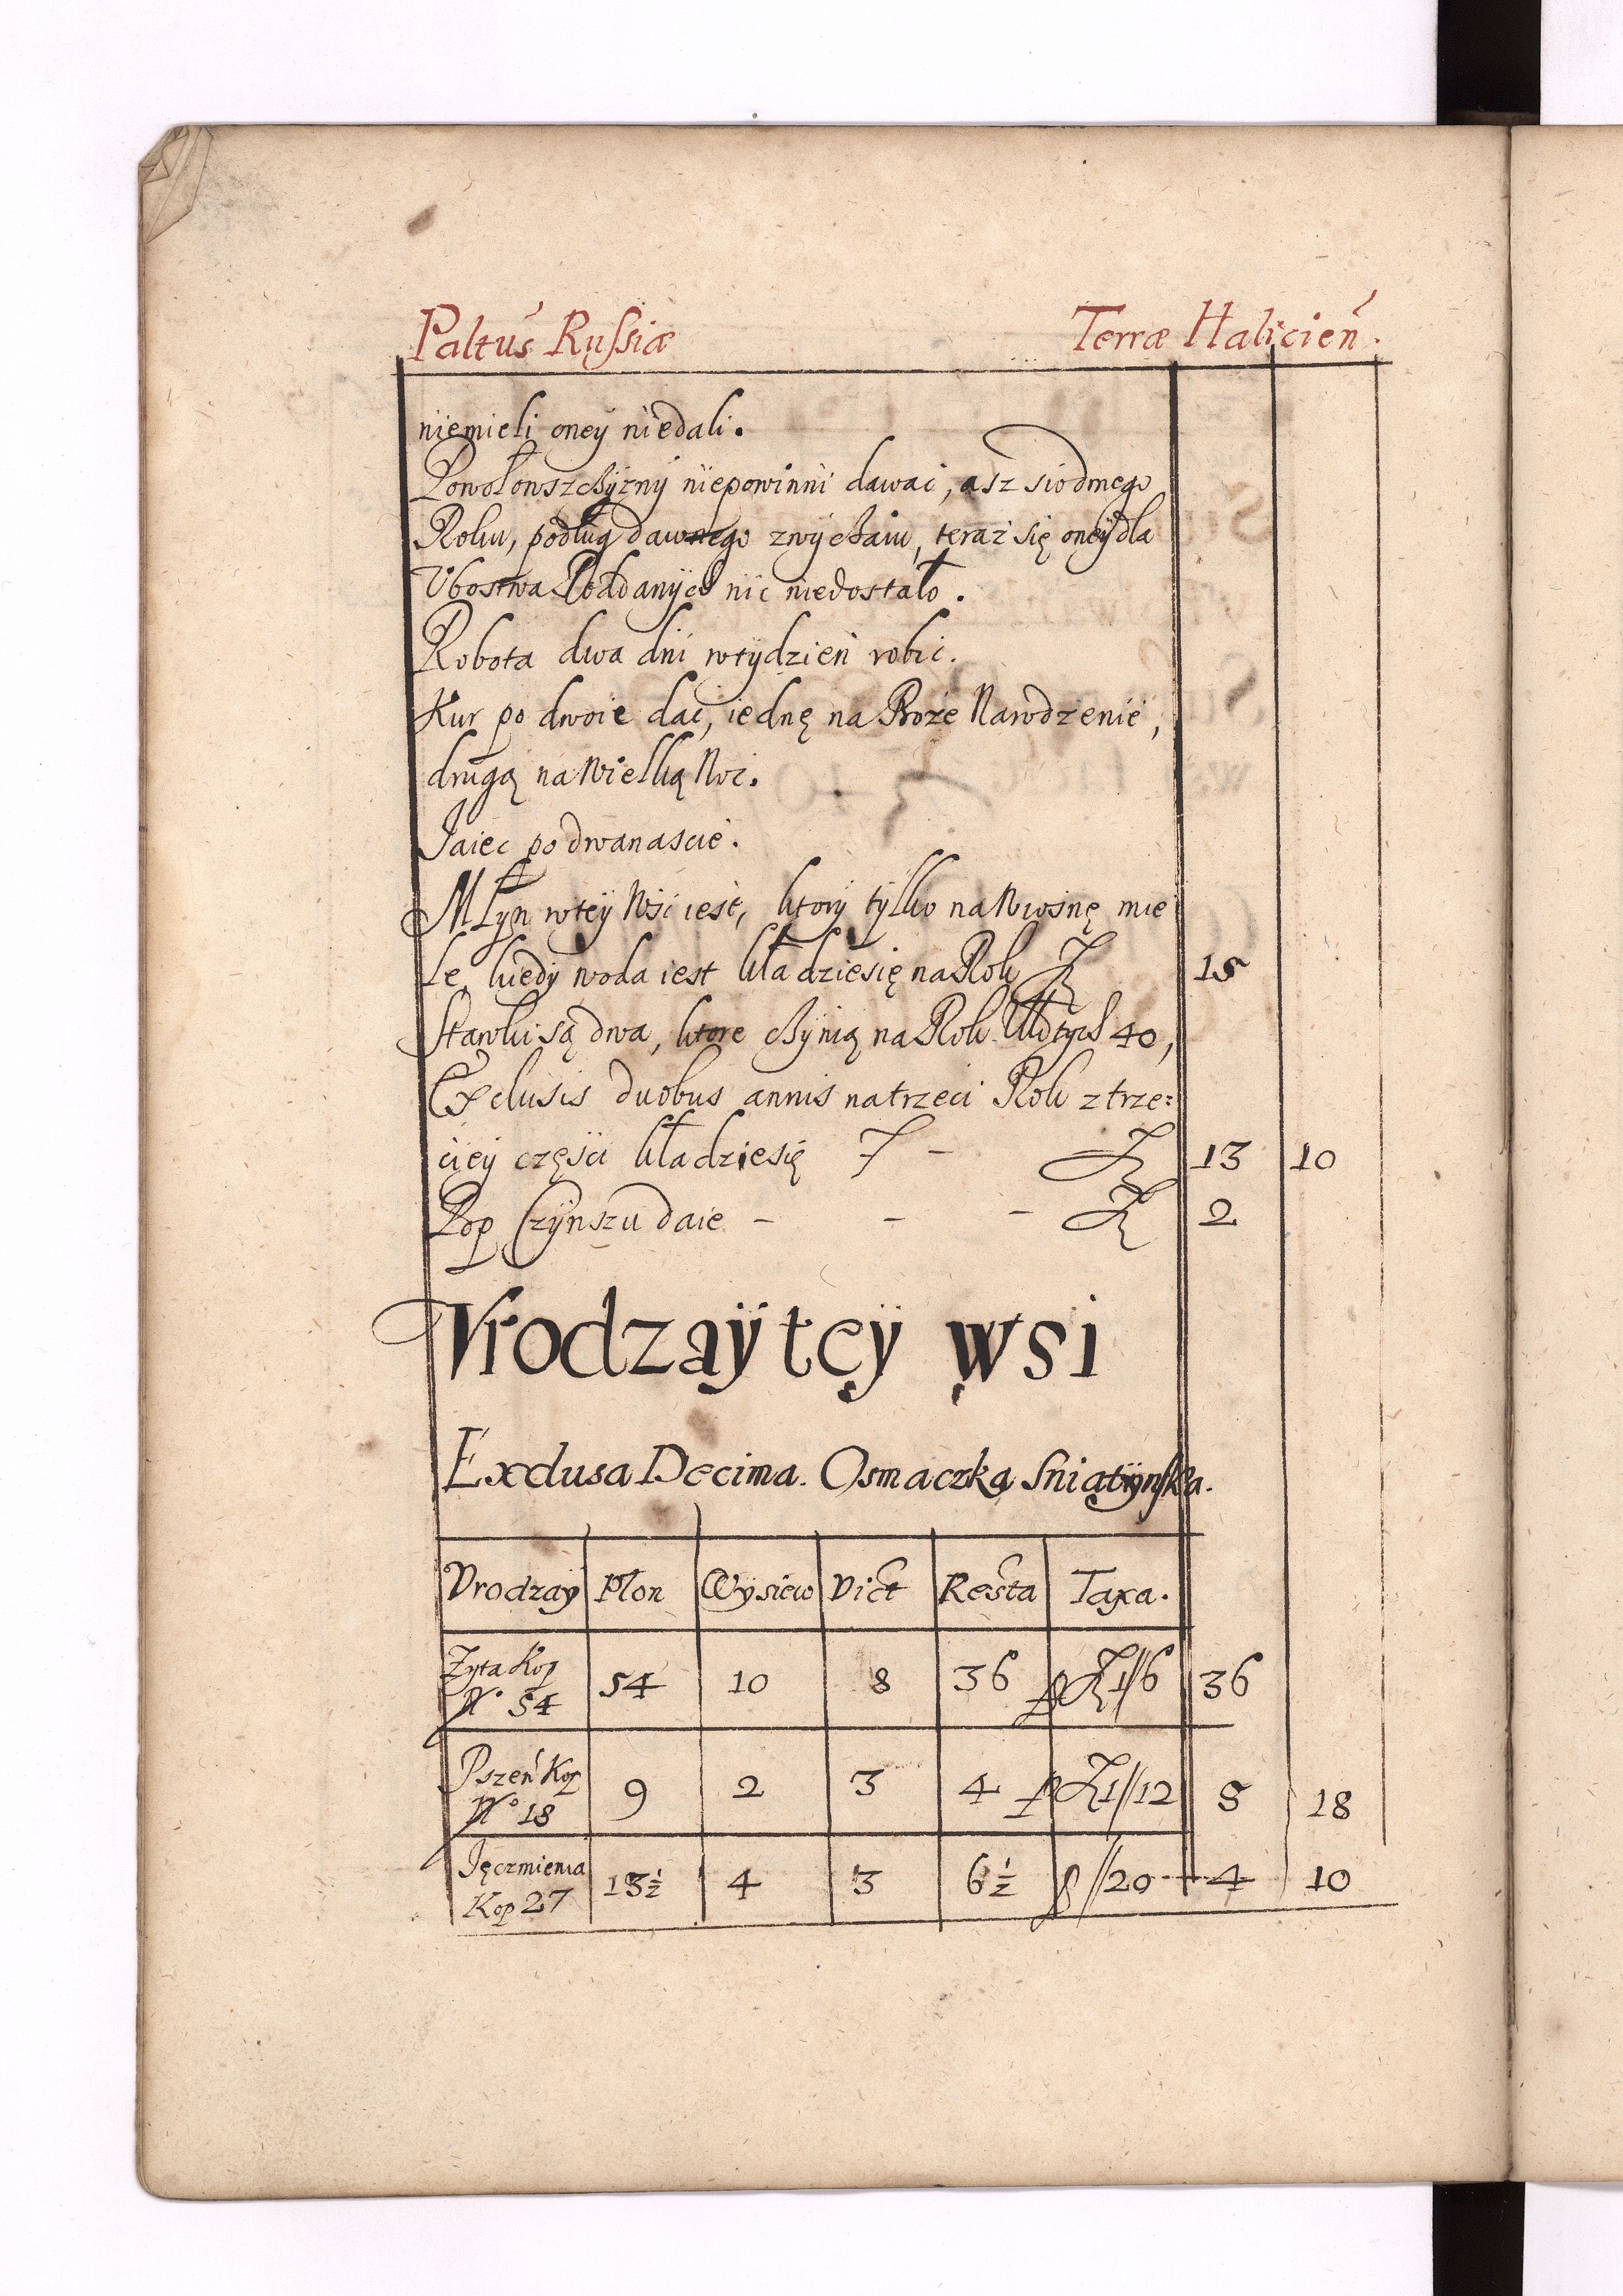 Paltus Russiæ Terræ Halicien.
niemieli oney niedali.
Powołowszchyzny niepowinni dawac, asz siodmego
Roku, podług dawnego zwychaiu, teraz się oney dla
Vbostwa Poddanych nic niedostało.
Robota dwa dni wtydzien robic.
Kur po dwoie dac, iednę na Boże Narodzenie,
drugą na Wielką Noc.
Jaiec po dwanascie.
Młyn wtey Wsi iest, ktory tylko na Wiosnę mie
le, kiedy woda iest kładziesię na Rok 15
Stawki są dwa, ktore chynią na Rok 40,
Exclusis duobus annis natrzeci Rok z trze:
ciey częsci kładziesię - 13 10
Pop Czynszu daie - - - 2
Vrodzay tey wsi
Exclusa Decima. Osmaczka Sniatynska.
Vrodzay Płon Wysiew Vict Resta Taxa.
Zyta Kop No 54 54 10 8 36 1//6 36
Pszen Kop No 18 9 2 3 4 1//12 5 18
Jęczmienia Kop 27 13½ 4 3 6½ //20 4 10